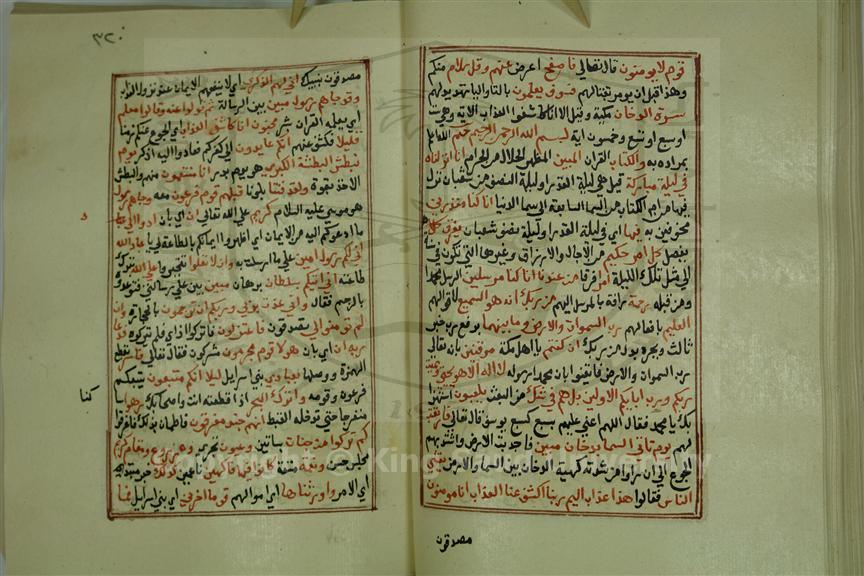 قوم لا يومنون قال تعالى فاصفح اعرض عنهم وقل سلام منكم
وهذا قبل ان يومر بقتالهم فسوف يعلمون بالتا واليا تهديد لهم
سورة الدخان مكية وقيل الا انا كاشفوا العذاب الاية وهي ست
او سبع او تسع وخمسون اية بسم الله الرحمن الرحيم حم الله اعلم
بمراده به والكتاب القران المبين المظهر الحلال من الحرام انا انزلناه
في ليلة مباركة قيل هي ليلة القدر او ليلة النصف من شعبان نزل
فيها من ام الكتاب من السما السابعة الى سما الدنيا انا كنا منذرين
مخوفين به فيها اي في ليلة القدر او ليلة نصف شعبان يفرق
يفصل كل امر حكيم من الاجال والارزاق وغيرها التي تكون في
الى مثل تلك الليلة امرا فرقا من عندنا انا كنا مرسلين الرسل محمدا
ومن قبله رحمة رافة بالمرسل اليهم من ربك انه هو السميع لاقوالهم
العليم بافعالهم رب السموات والارض وما بينهما برفع رب خبر
ثالث وبجره بدل من ربك ان كنتم يا اهل مكة موقنين بانه تعالى
رب السموات والارض فايقنوا بان محمدا رسوله لا اله الا هو يحيي
ربكم ورب ابايكم الاولين بل هم في شك من البعث يلعبون استهزا
بك يا محمد فقال اللهم اعني عليهم بسبع كسبع يوسف قال تعالى فارتقب
لهم يوم تاتي السما بدخان مبين فاجدبت الارض واشتد بهم
الجوع الى ان راوا من شدته كهيئة الدخان بين السما والارض يغشى
الناس فقالوا هذا عذاب اليم ربنا اكشف عنا العذاب انا مومنون
مصدقون
٣٢٠
مصدقون بنبيك انى لهم الذكرى اي لا ينفعهم الايمان عند نزول العذاب
وقد جاهم رسول مبين بين الرسالة ثم تولوا عنه وقالوا معلم
اي يعلمه القران بشر مجنون انا كاشفوا العذاب اي الجوع عنكم زمنا
قليلا فكشف عنهم انكم عايدون الى كفركم فعادوا اليه اذكر يوم
نبطش البطشة الكبرى هو يوم بدر انا منتقمون منهم والبطش
الاخذ بقوة ولقد فتنا بلونا قبلهم قوم فرعون معه وجاهم رسول
هو موسى عليه السلام كريم على الله تعالى ان اي بان ادوا الي
ما ادعوكم اليه من الايمان اي اظهروا ايمانكم بالطاعة لي يا عباد الله
اني لكم رسول امين على ما ارسلت به وان لا تعلوا تتجبروا على الله بترك
طاعته اني اتيكم بسلطان برهان مبين بين على رسالتي فتوعدوه
بالرجم فقال واني عذت بربي وربكم ان ترجمون بالحجارة وان
لم تومنوا لي تصدقون فاعتزلون فاتركوا اذاي فلم يتركوه فدعا
ربه ان اي بان هولا قوم مجرمون مشركون فقال تعالى فاسر بقطع
الهمزة ووصلها بعبادي بني اسرايل ليلا انكم متبعون يتبعكم
فرعون وقومه واترك البحر اذا قطعته انت واصحابك رهوا سا
كنا
منفرجا حتى تدخله القبط انهم جند مغرقون فاطمان بذلك فاغرقوا
كم تركوا من جنات بساتين وعيون تجري وزروع ومقام كريم
مجلس حسن ونعمة متعة كانوا فيها فاكهين ناعمين كذلك خبر مبتدا
اي الامر واورثناها اي اموالهم قوما اخرين اي بني اسرايل فما